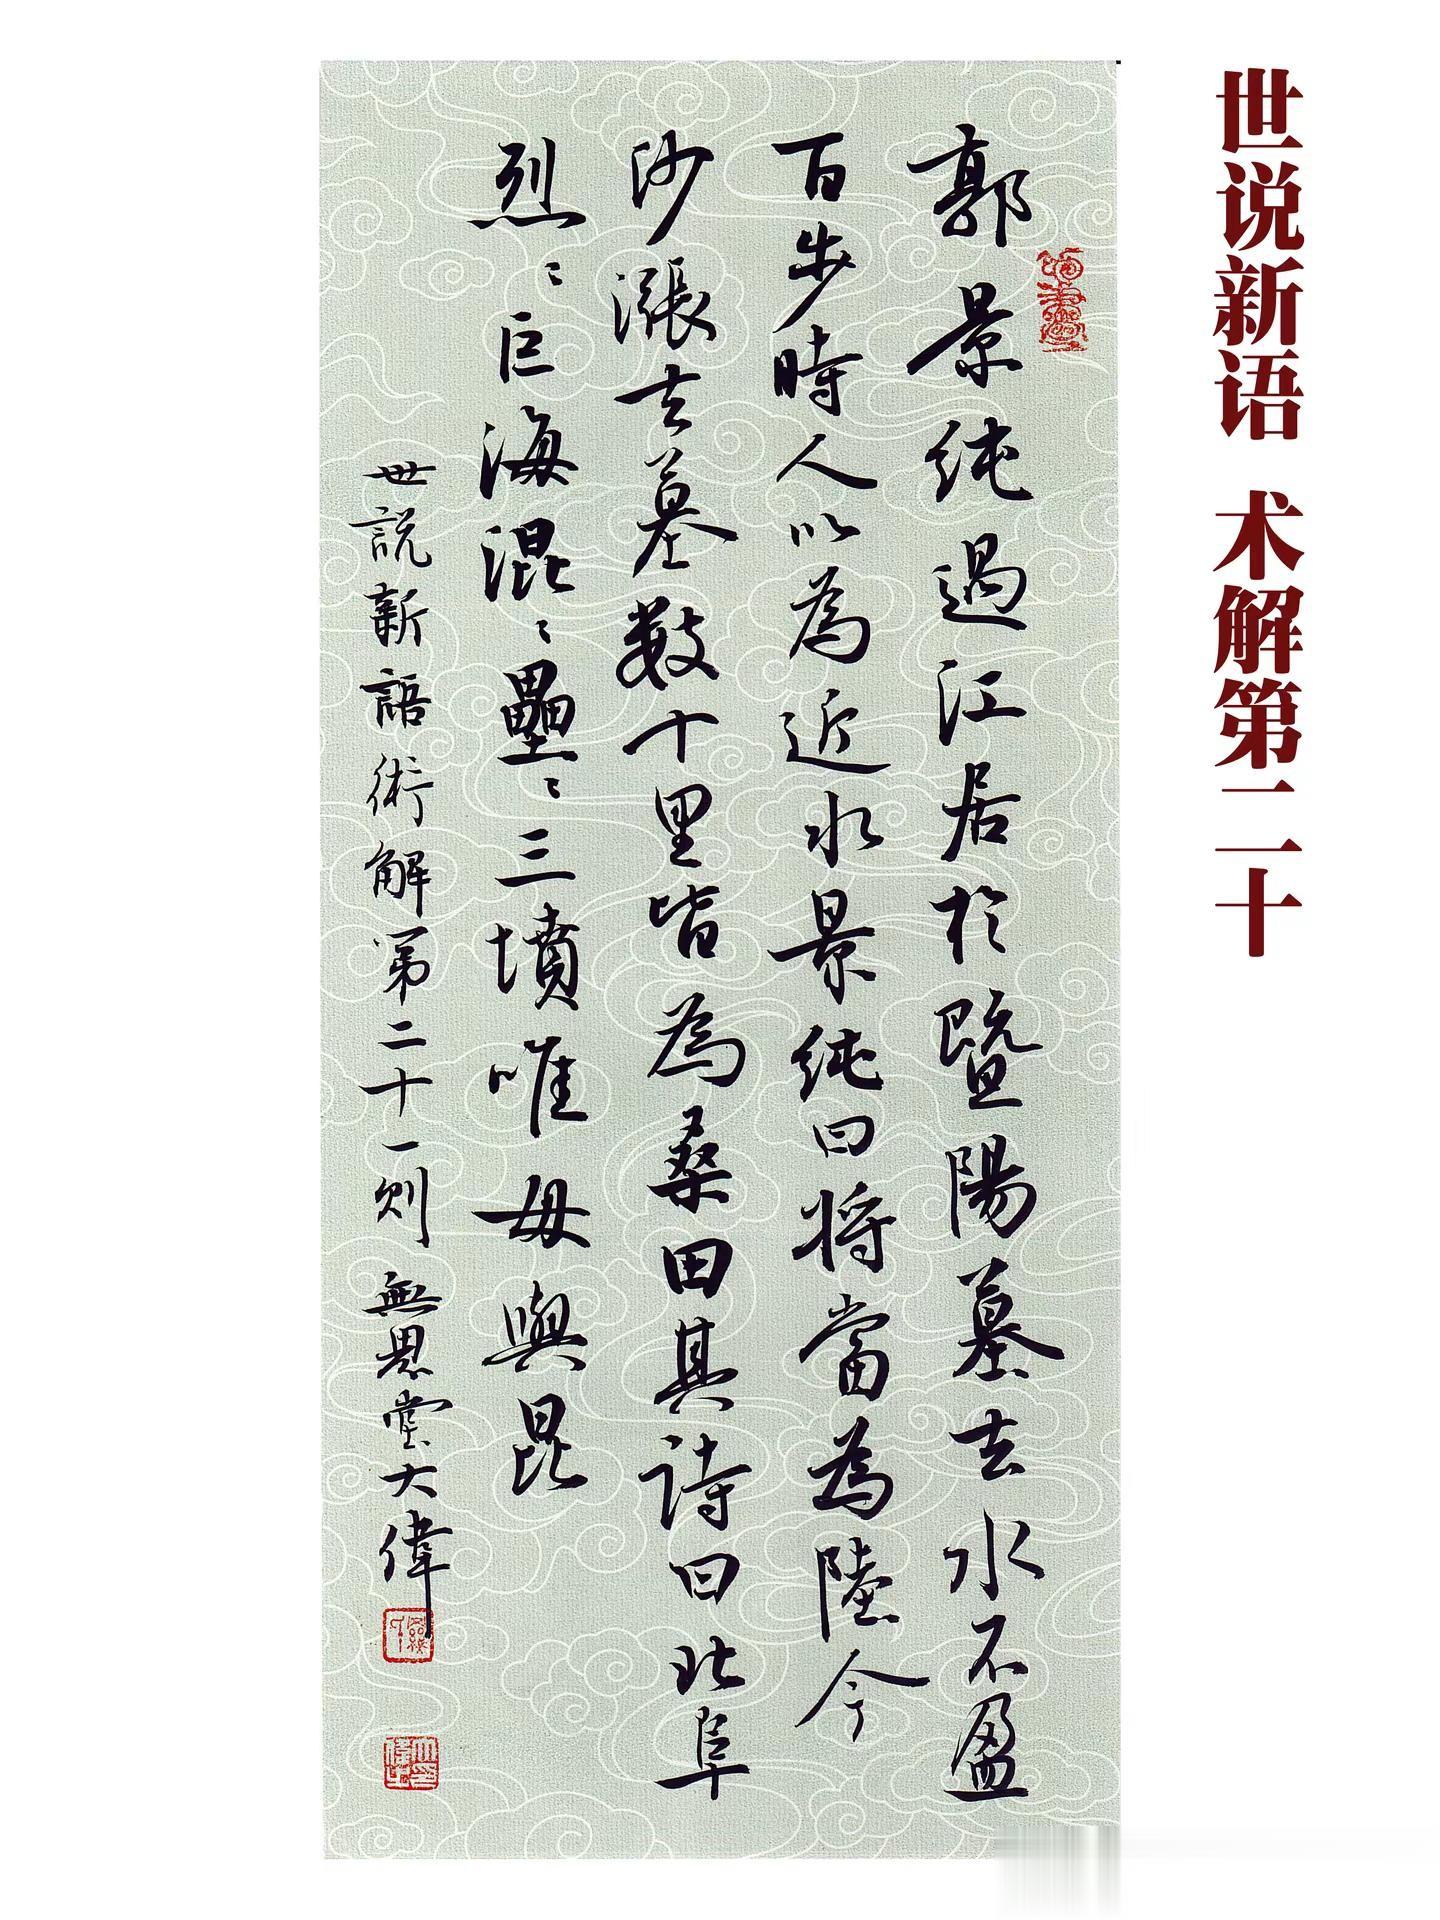 世说新语 术解第二十
郭景纯過江居於暨陽墓去水不盈
百步時人以為近水景纯曰将當為陸今
沙漲去墓数十里皆為桑田其詩曰北阜
烈〻巨海混〻壘〻三墳唯母與昆
世説新語術解第二十一則 無思堂大偉